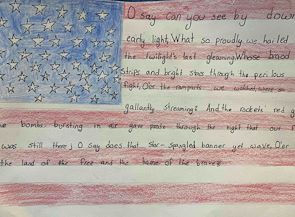 O say can you see by dawn
early light, What so proudly we hailed
the twilight's last gleaming, Whose broad
stripes and bright stars through the perilous
fight, O'er the ramparts we watched, were so
gallantly streaming? And the rockets red g
bombs bursting in air gave proof through the night that our f
was still there; O say does that star-spangled banner yet wave, O'er
the land of the free and the home of the brave?